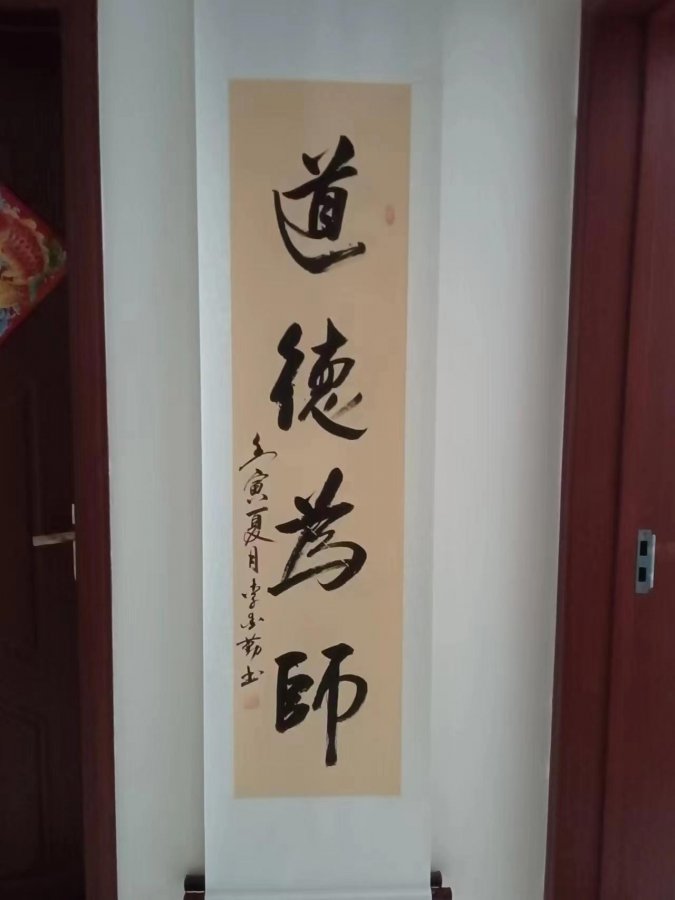 道德為師
壬寅夏月李勤書